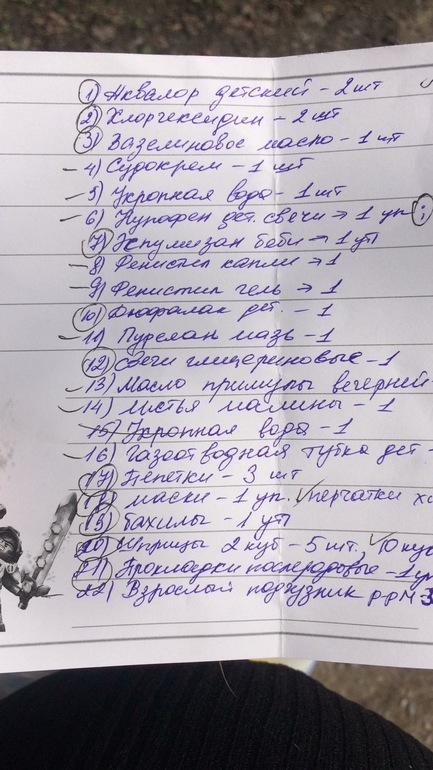 1) Аквалор детский - 2 шт
2) Хлоргексидин - 2 шт
3) Вазелиновое масло - 1 шт
4) Судокрем - 1 шт
5) Укропная вода - 1 шт
6) Нурофен дет. свечи → 1 уп
7) Эспумизан беби → 1 уп
8) Фенистил капли → 1
9) Фенистил гель → 1
10) Дюфалак дет. - 1
11) Пурелан мазь - 1
12) Свечи глицериновые - 1
13) Масло примулы вечерней -
14) Листья малины - 1
15) Укропная вода - 1
16) Газоотводная тубка дет -
17) Пепетки - 3 шт
18) маски - 1 уп. ✓ перчатки
19) Бахилы - 1 уп
20) Шприцы 2 куб - 5 шт, ✓ 10 куб
21) Прокладки послеродовые - 1 уп
22) Взрослый подгузник ррМ-3